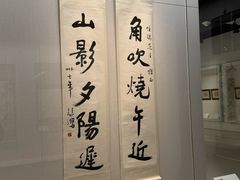 角吹燒午近
山影夕陽遲